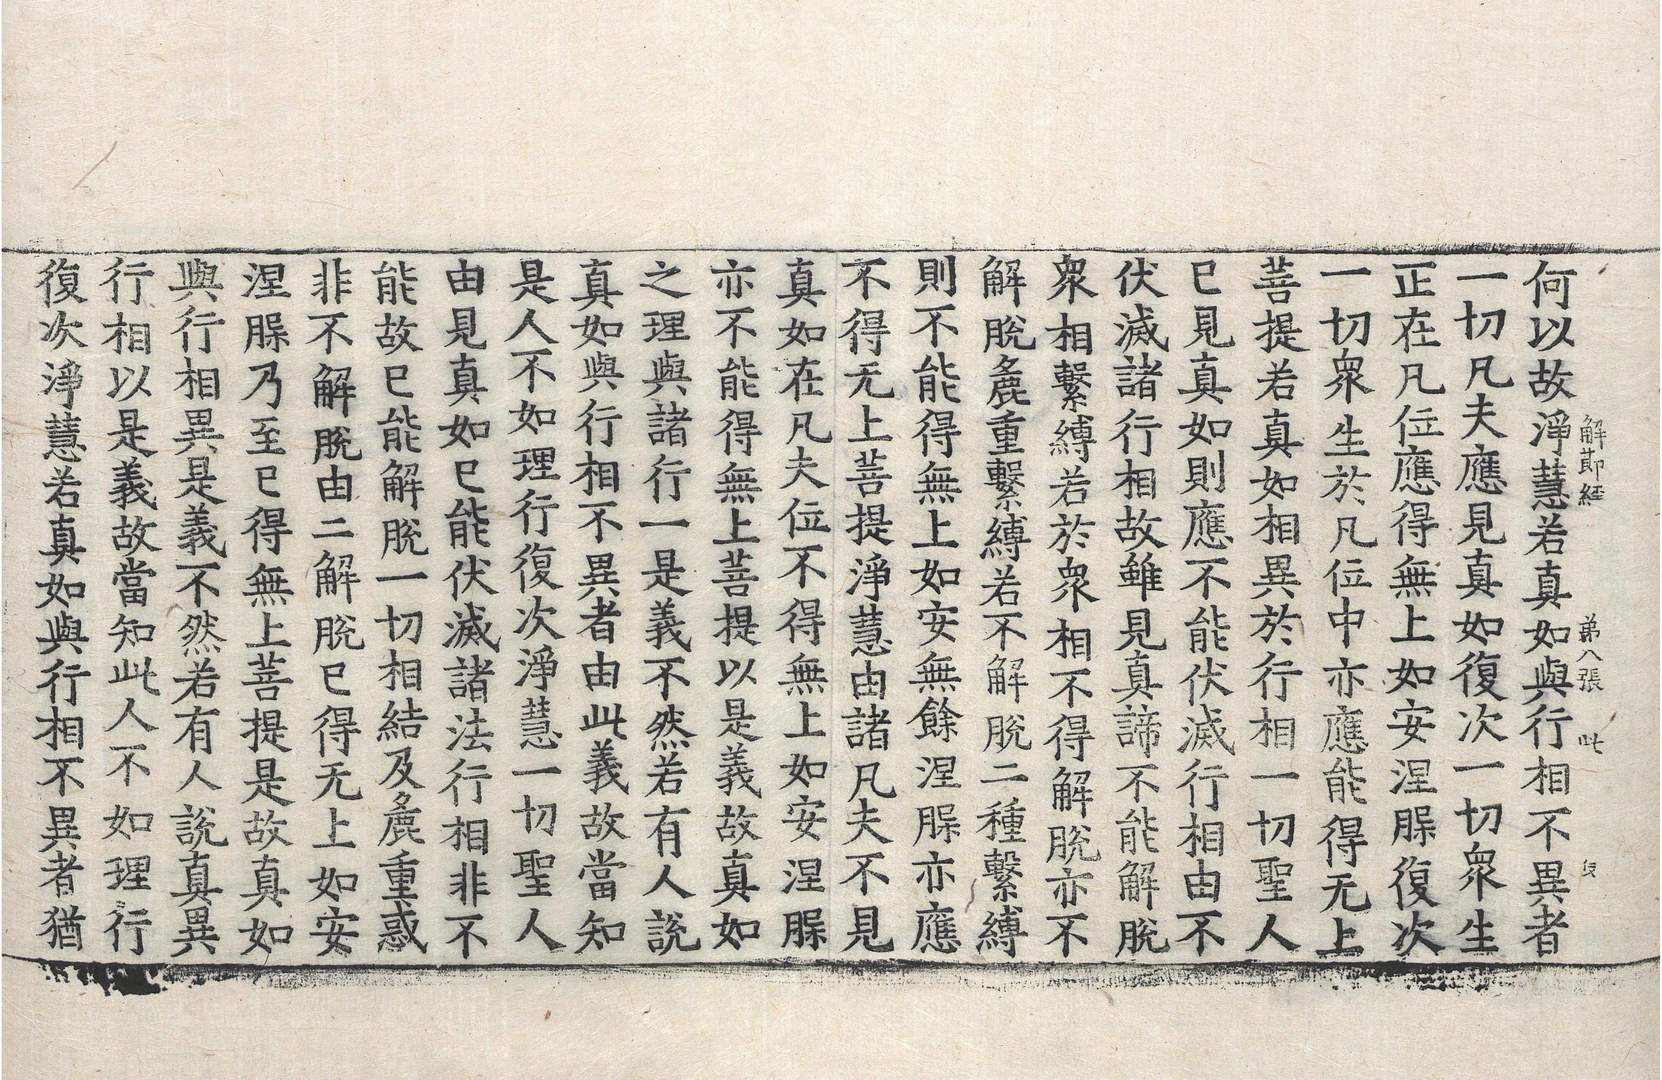 解莭經　弟八張　此
何以故淨慧若真如與行相不異者
一切凡夫應見真如復次一切衆生
正在凡位應得無上如安涅槃復次
一切衆生於凡位中亦應能得无上
菩提若真如相異於行相一切聖人
已見真如則應不能伏滅行相由不
伏滅諸行相故雖見真諦不能解脫
衆相繫縛若於衆相不得解脫亦不
解脫麁重繫縛若不解脫二種繫縛
則不能得無上如安無餘涅槃亦應
不得无上菩提淨慧由諸凡夫不見
真如在凡夫位不得無上如安涅槃
亦不能得無上菩提以是義故真如
之理與諸行一是義不然若有人說
真如與行相不異者由此義故當知
是人不如理行復次淨慧一切聖人
由見真如已能伏滅諸法行相非不
能故已能解脫一切相結及麁重惑
非不解脫由二解脫已得无上如安
涅槃乃至已得無上菩提是故真如
與行相異是義不然若有人說真異
行相以是義故當知此人不如理行
復次淨慧若真如與行相不異者猶